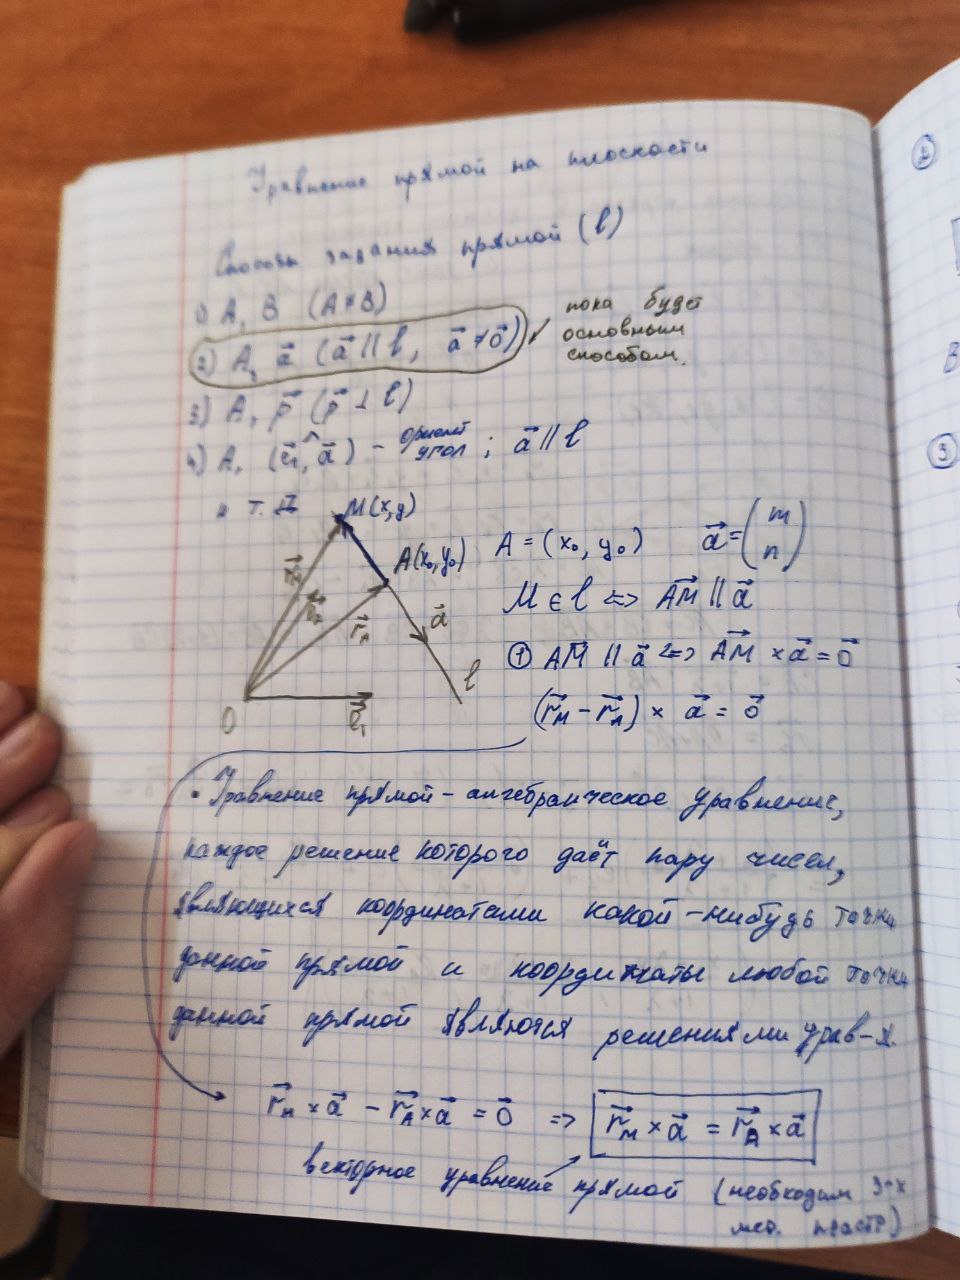 Уравнение прямой на плоскости
Способы задания прямой (l)
1) A, B (A ≠ B)
2) A, a⃗ (a⃗ || l, a⃗ ≠ 0⃗)
пока будет
основным
способом.
3) A, p⃗ (p⃗ ⊥ l)
4) A, (e⃗₁,^a⃗) – ориент угол ; a⃗ || l
и т. д
M(x,y)
A(x₀, y₀)
r⃗ₐ
a⃗
l
O
e⃗₁
A = (x₀, y₀) a⃗ = (m n)
M ∈ l <=> AM⃗ || a⃗
① AM⃗ || a⃗ <=> AM⃗ × a⃗ = 0⃗
(r⃗_M − r⃗_A) × a⃗ = 0⃗
• Уравнение прямой – алгебраическое уравнение,
каждое решение которого даёт пару чисел,
являющихся координатами какой-нибудь точки
данной прямой и координаты любой точки
данной прямой являются решениями урав-я.
r⃗_M × a⃗ − r⃗_A × a⃗ = 0⃗ => r⃗_M × a⃗ = r⃗_A × a⃗
векторное уравнение прямой (необходим 3-х
мер. простр)
②
B
③